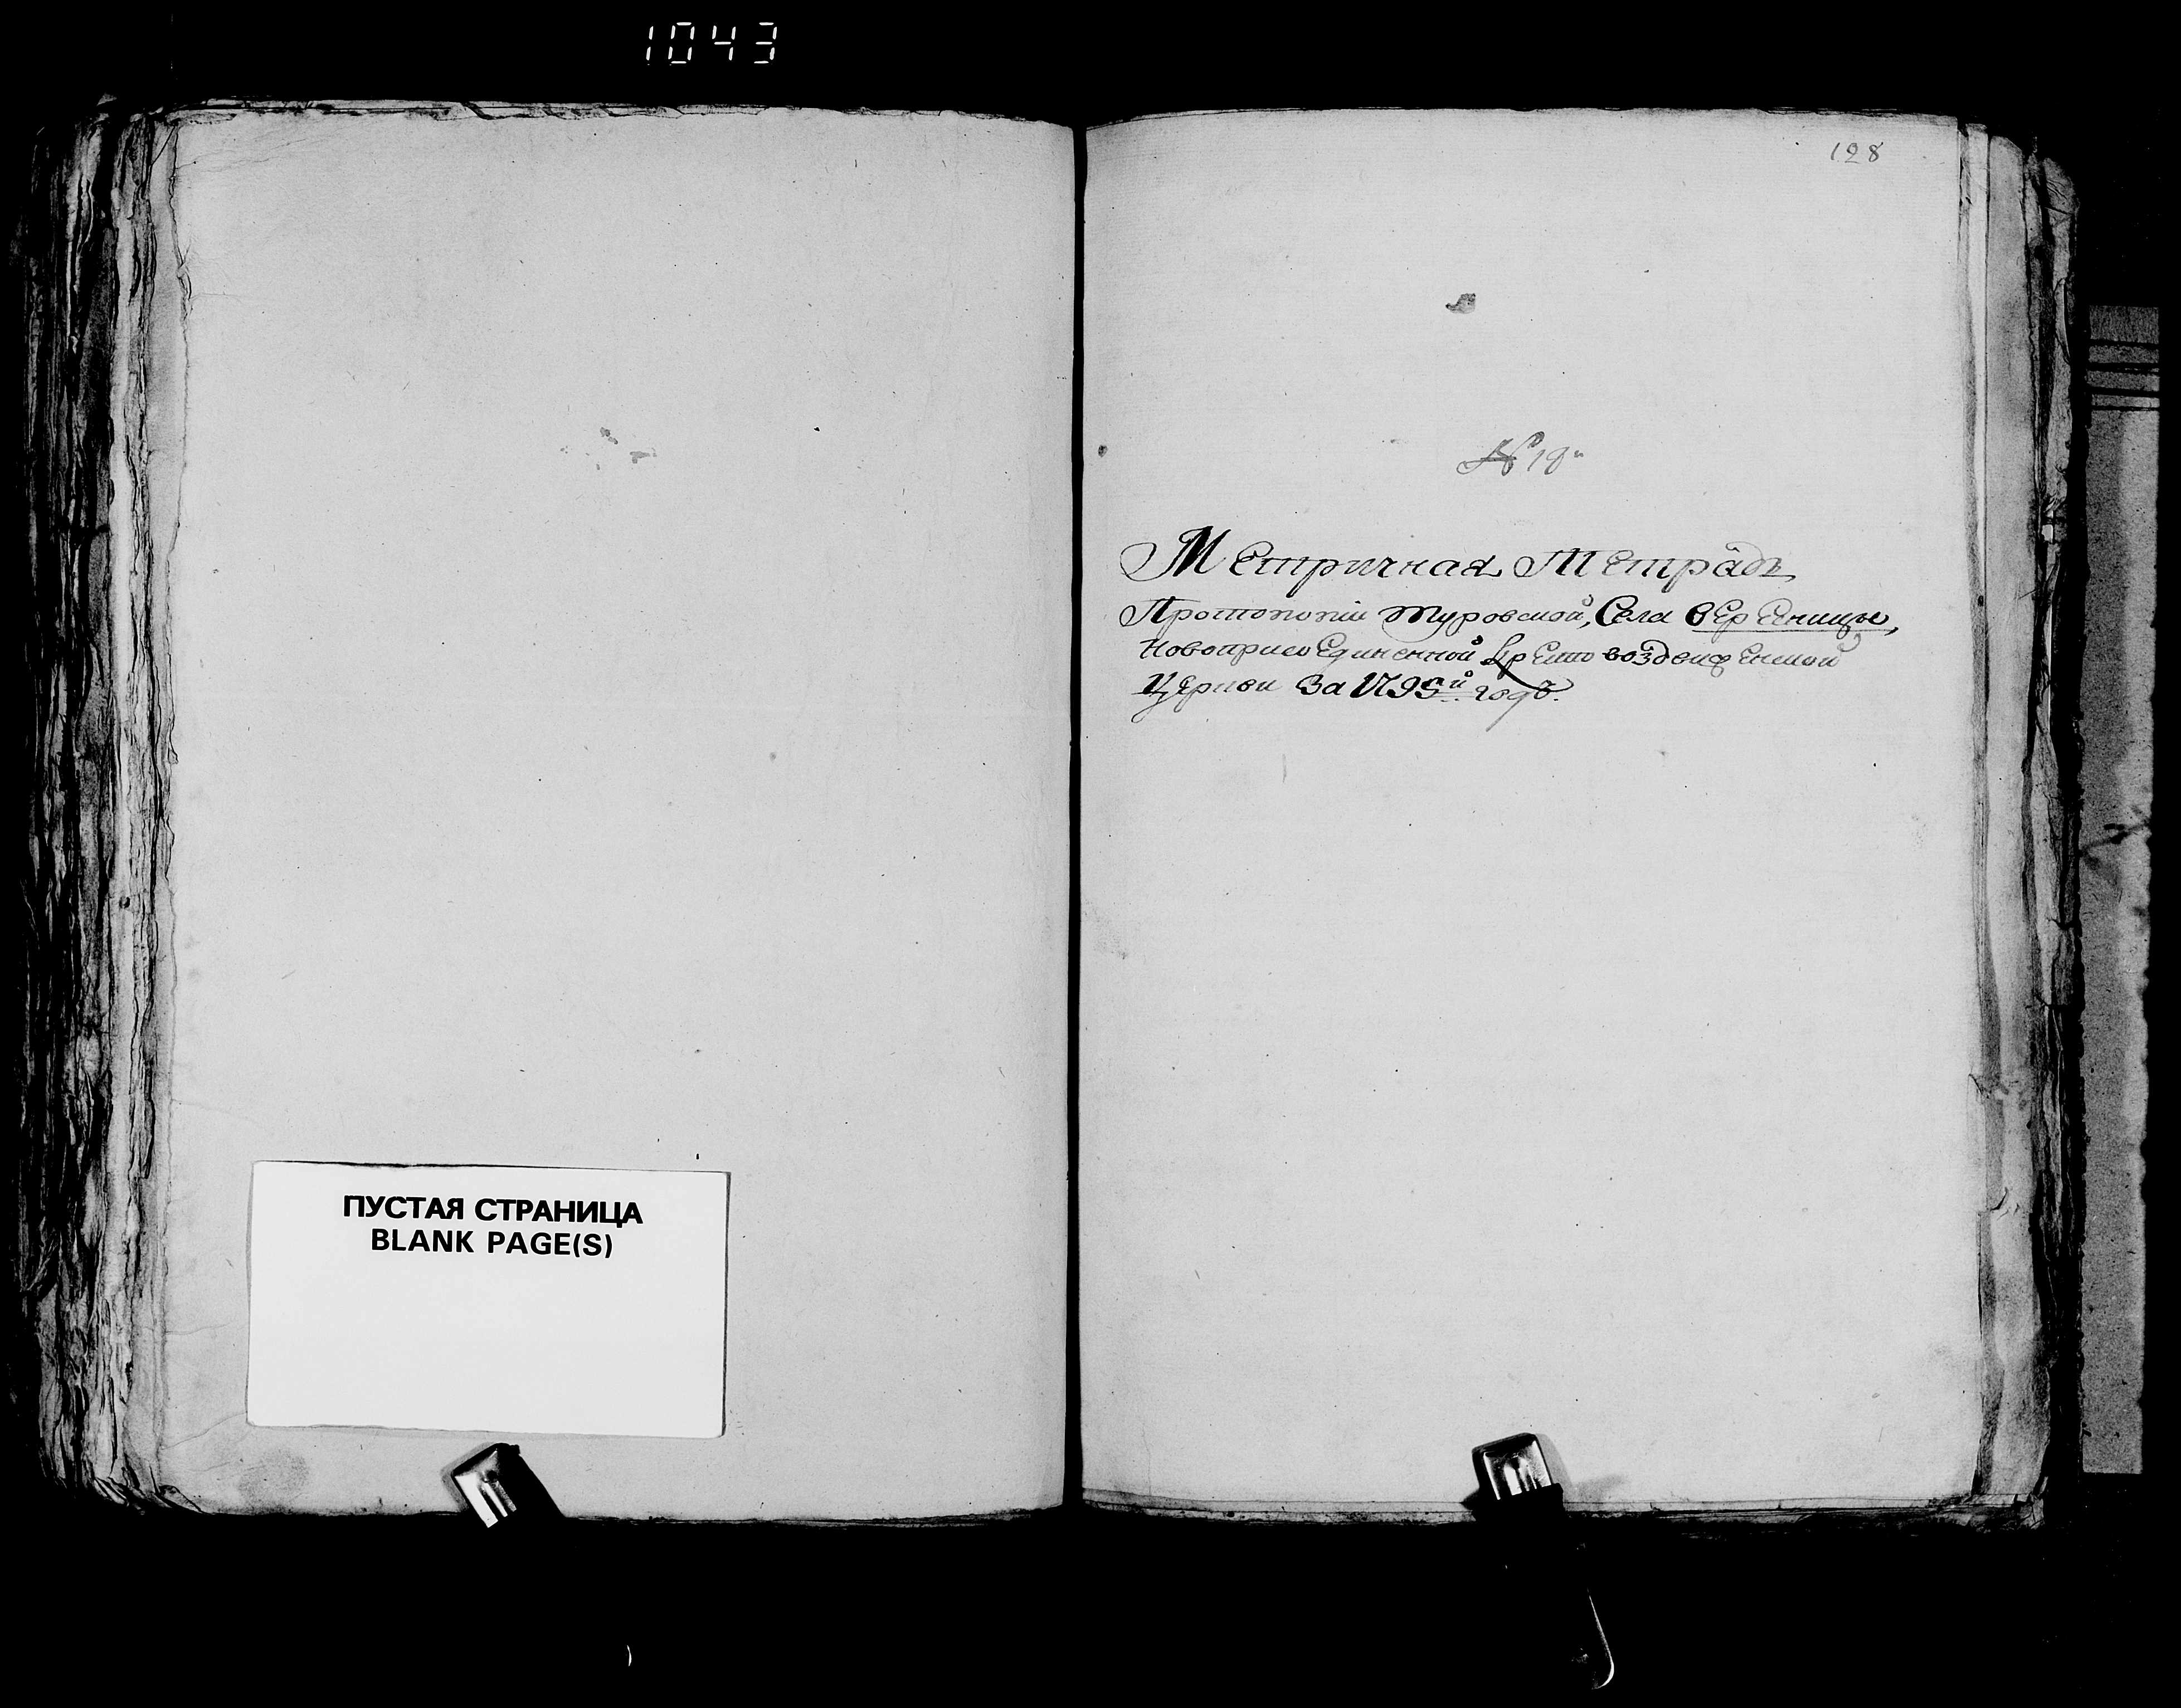 1043
ПУСТАЯ СТРАНИЦА
BLANK PAGE(S)
128
№ 18й
Метричная Тетрадь
Протопопіи Туровской, Села Вересницы,
Новоприсоединенной Крестовоздвиженской
Церкви За 1795й годъ.